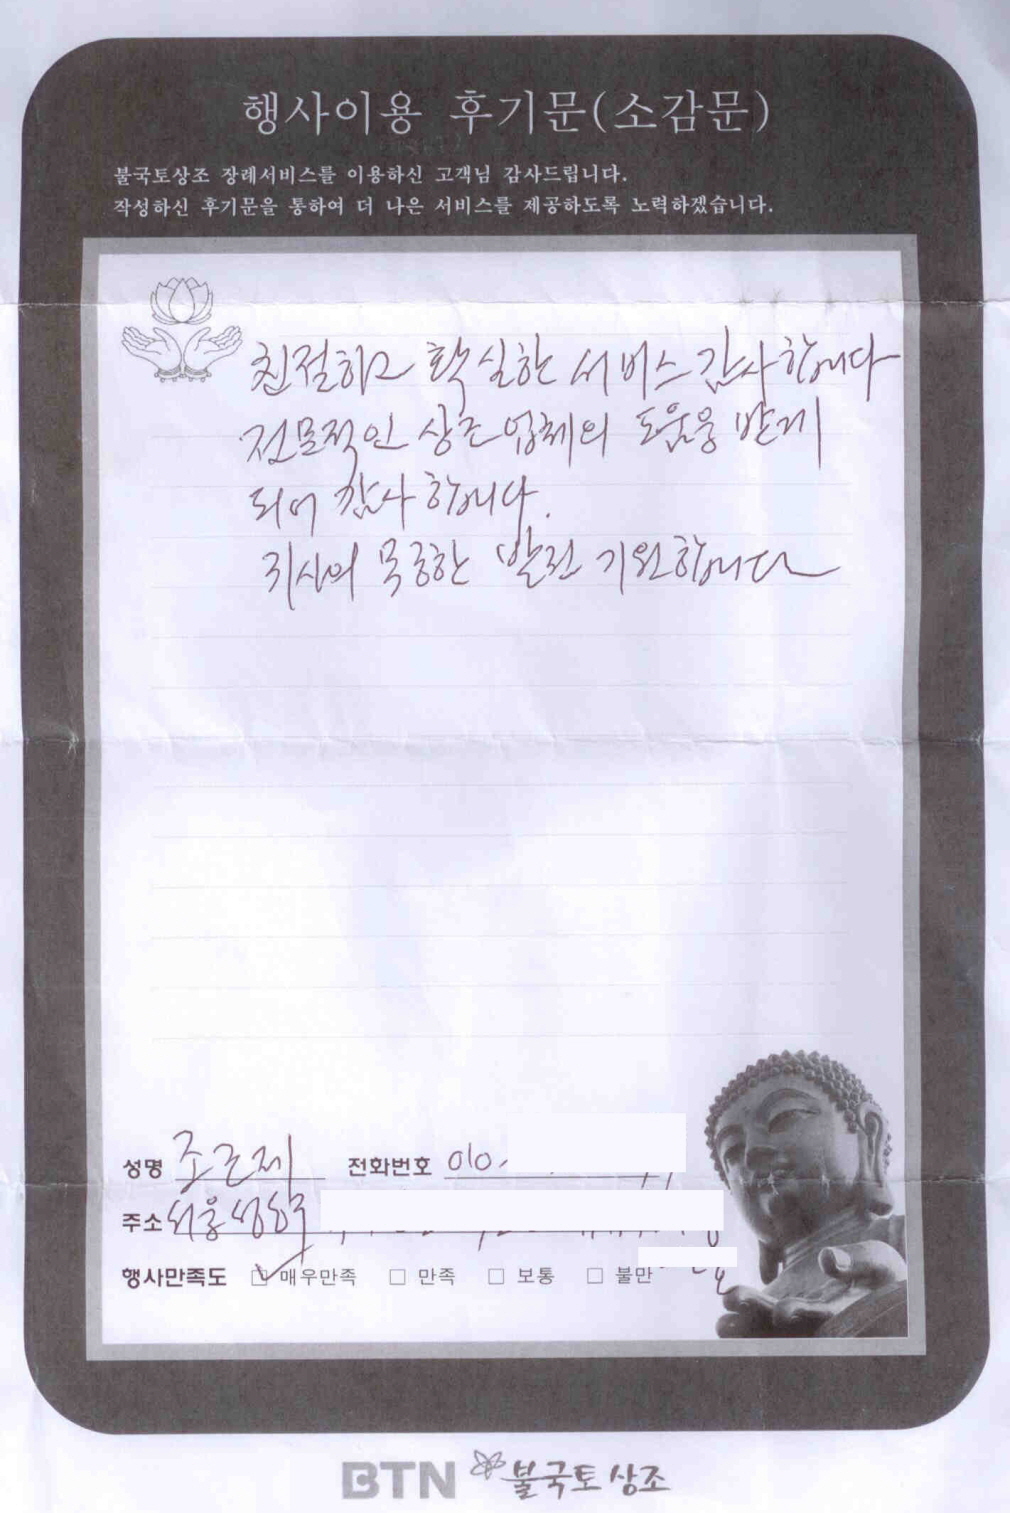 행사이용 후기문(소감문)
불국토상조 장례서비스를 이용하신 고객님 감사드립니다.
작성하신 후기문을 통하여 더 나은 서비스를 제공하도록 노력하겠습니다.
친절하고 확실한 서비스 감사합니다
전문적인 상조 업체의 도움을 받게
되어 감사합니다.
귀사의 무궁한 발전 기원합니다
성명 조근제 전화번호 010-
주소 서울 성동구
행사만족도 ☑ 매우만족 □ 만족 □ 보통 □ 불만
BTN 불국토상조